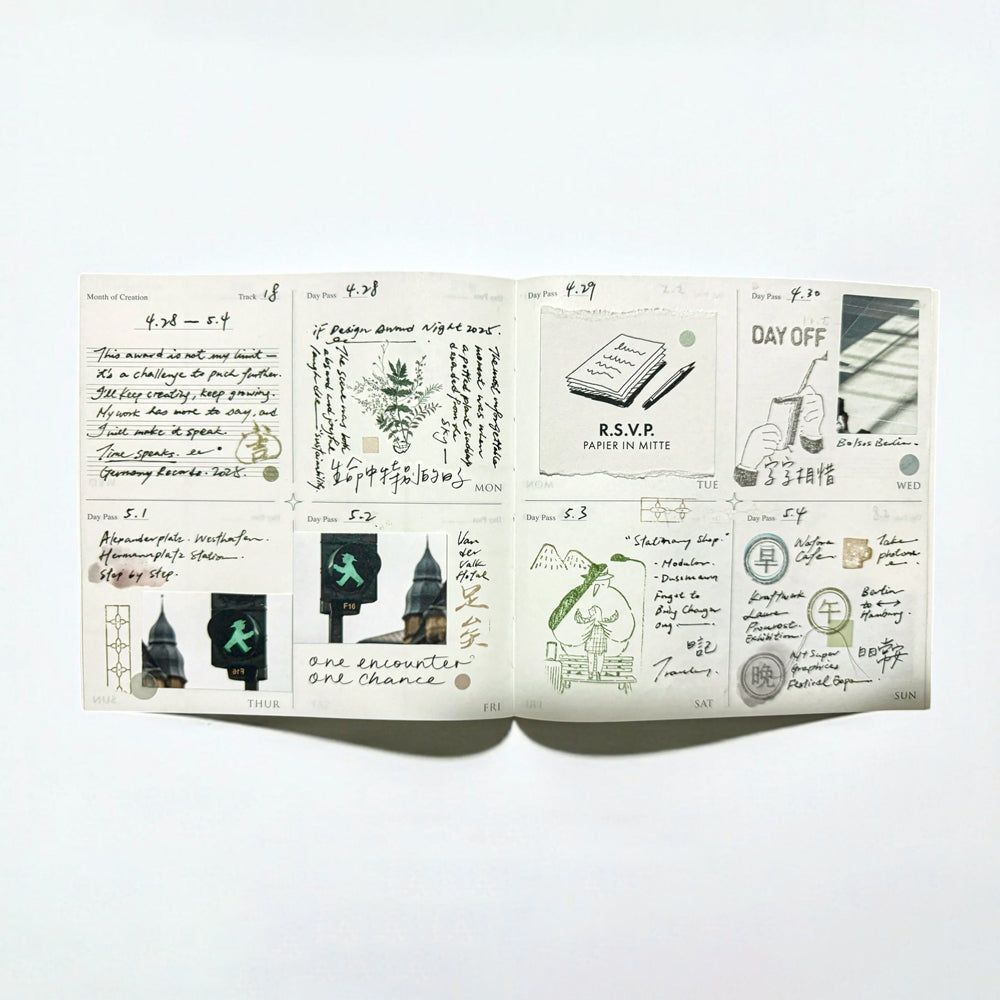 Month of Creation
Track 18
4.28 — 5.4
This award is not my limit —
it's a challenge to push further.
I'll keep creating, keep growing.
My work has more to say, and
I will make it speak.
Time speaks.
Germany Records. 2025.
Day Pass 4.28
iF Design Award Night 2025.
The most unforgettable
moment was when
a potted plant suddenly
descended from the
sky —
The scene was both
absurd and joyful
生命中特別的日子
MON
Day Pass 4.29
R.S.V.P.
PAPIER IN MITTE
TUE
Day Pass 4.30
DAY OFF
Berlin.
字字相惜
WED
Day Pass 5.1
Alexanderplatz. Westhafen.
Hermannplatz Station.
Step by Step.
F16
THUR
Day Pass 5.2
F16
Van
der
Valk
Hotel
足矣
one encounter
one chance
FRI
Day Pass 5.3
"Stationary Shop."
· Modulor.
· Dussmann
Forgot to
日記
Traveling.
SAT
Day Pass 5.4
早
Cafe.
Take
photos
午
Kraftwerk
Exhibition.
Berlin
to
晚
Festival Expo
日日常安
SUN